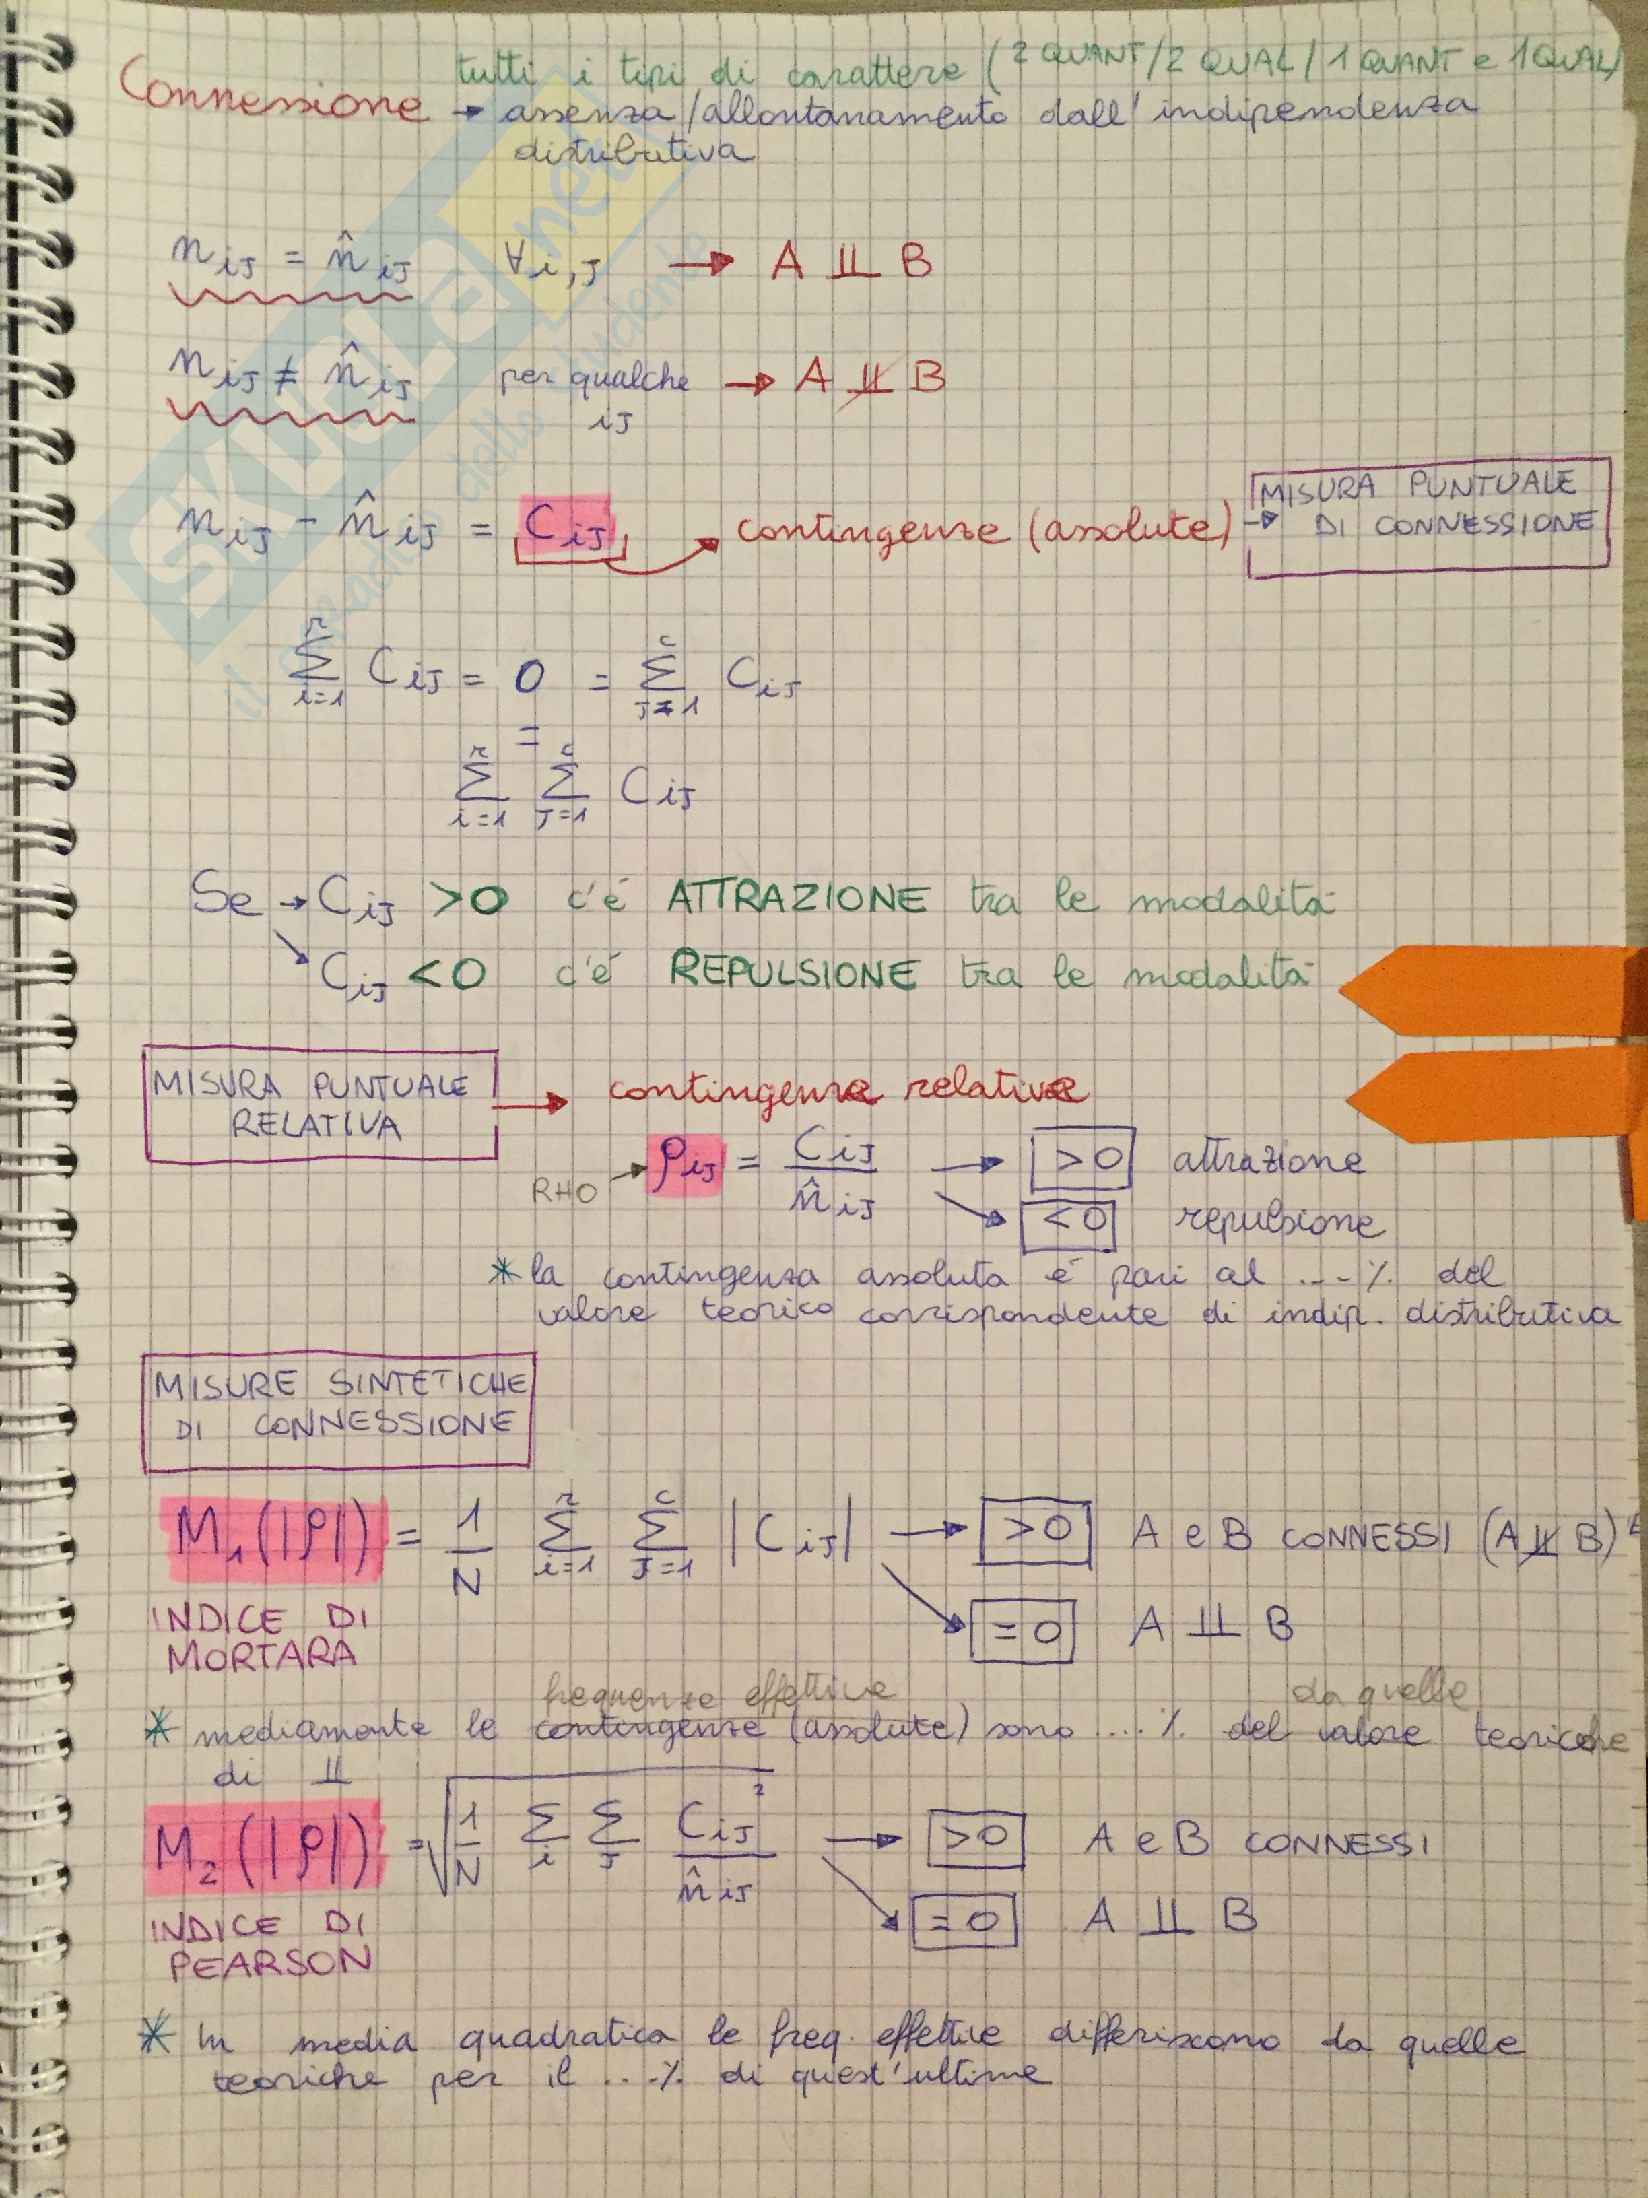 tutti i tipi di carattere (2 QUANT/2 QUAL/1 QUANT e 1 QUAL)
Connessione → assenza/allontanamento dall'indipendenza
distributiva
n_ij = n̂_ij ∀i,j → A ⫫ B
n_ij ≠ n̂_ij per qualche → A ⫫̸ B
ij
n_ij - n̂_ij = C_ij → contingenze (assolute) → MISURA PUNTUALE
DI CONNESSIONE
∑_{i=1}^{r} C_ij = 0 = ∑_{j=1}^{c} C_ij
=
∑_{i=1}^{r} ∑_{j=1}^{c} C_ij
Se → C_ij >0 c'é ATTRAZIONE tra le modalitá
↘ C_ij <0 c'é REPULSIONE tra le modalitá
MISURA PUNTUALE
RELATIVA → contingenze relative
RHO → ρ_ij = C_ij / n̂_ij → >0 attrazione
↘ <0 repulsione
* la contingenza assoluta é pari al ...% del
valore teorico corrispondente di indip. distributiva
MISURE SINTETICHE
DI CONNESSIONE
M_1(|ρ|) = 1/N ∑_{i=1}^{r} ∑_{j=1}^{c} |C_ij| → >0 A e B CONNESSI (A ⫫̸ B)
INDICE DI
MORTARA
↘ =0 A ⫫ B
frequenze effettive da quelle
* mediamente le contingenze (assolute) sono ...% del valore teoriche
di ⫫
M_2(|ρ|) = √(1/N ∑_i ∑_j C_ij² / n̂_ij) → >0 A e B CONNESSI
INDICE DI
PEARSON
↘ =0 A ⫫ B
* In media quadratica le freq. effettive differiscono da quelle
teoriche per il ...% di quest'ultime
SKUOLA.net